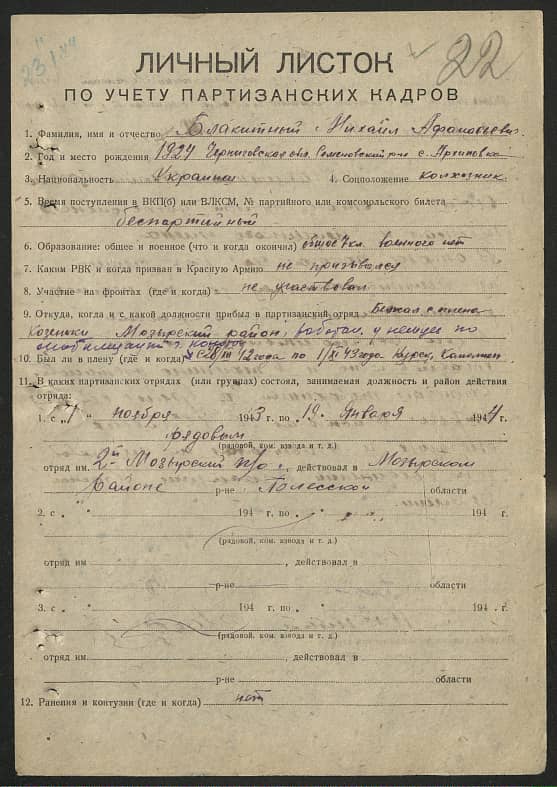 23/I.44
22
ЛИЧНЫЙ ЛИСТОК
ПО УЧЕТУ ПАРТИЗАНСКИХ КАДРОВ
1. Фамилия, имя и отчество Блакитный Михаил Афанасьевич
2. Год и место рождения 1924 Черниговская обл. Семеновский р-н с. Архиповка
3. Национальность Украинец 4. Соцположение колхозник
5. Время поступления в ВКП(б) или ВЛКСМ, № партийного или комсомольского билета
беспартийный
6. Образование: общее и военное (что и когда окончил) общее 7 кл. военного нет
7. Каким РВК и когда призван в Красную Армию не призывался
8. Участие на фронтах (где и когда) не участвовал
9. Откуда, когда и с какой должности прибыл в партизанский отряд Бежал с плена
Козенки, Мозырский район, работал у немцев по
мобилизации
10. Был ли в плену (где и когда) по 1/XI 43 года Курск,
11. В каких партизанских отрядах (или группах) состоял, занимаемая должность и район действия
отряда:
1. с „7" ноября 1943 г. по 19 января 1944 г.
рядовым
(рядовой, ком. взвода и т. д.)
отряд им. 2-й Мозырский п/о, действовал в Мозырском
Районе р-не Полесской области
2. с „ " 194 г. по „ " 194 г.
(рядовой, ком. взвода и т. д.)
отряд им , действовал в
р-не области
3. с „ " 194 г. по „ " 194 г.
(рядовой, ком. взвода и т. д.)
отряд им. , действовал в
р-не области
12. Ранения и контузии (где и когда) нет